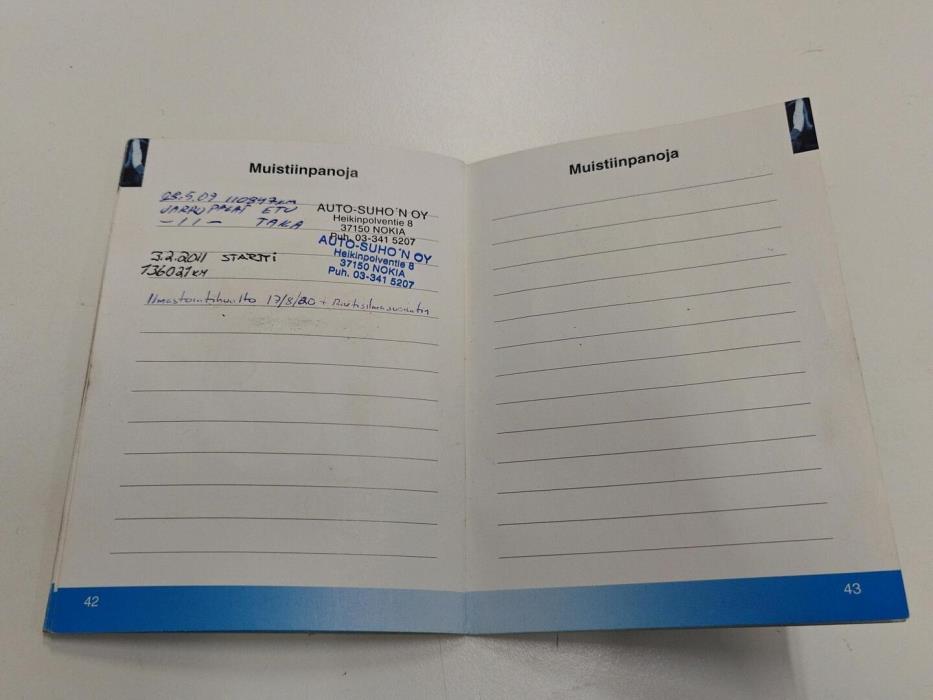 Muistiinpanoja
28.5.09 110847km
JARRUPALAT ETU
-11- TAKA
AUTO-SUHO´N OY
Heikinpolventie 8
37150 NOKIA
Puh. 03-341 5207
AUTO-SUHO´N OY
Heikinpolventie 8
37150 NOKIA
Puh. 03-341 5207
3.2.2011 STARTTI
136021KM
Ilmastointihuolto 17/8/20 + Raitisilmasuodatin
42
Muistiinpanoja
43